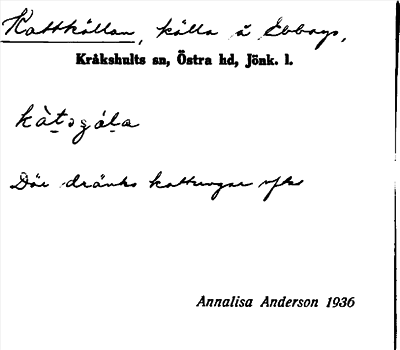 Kattkällan, källa å Ebbarp,
Kråkshults sn, Östra hd, Jönk. l.
Där dränks kattungar ofta
Annalisa Anderson 1936